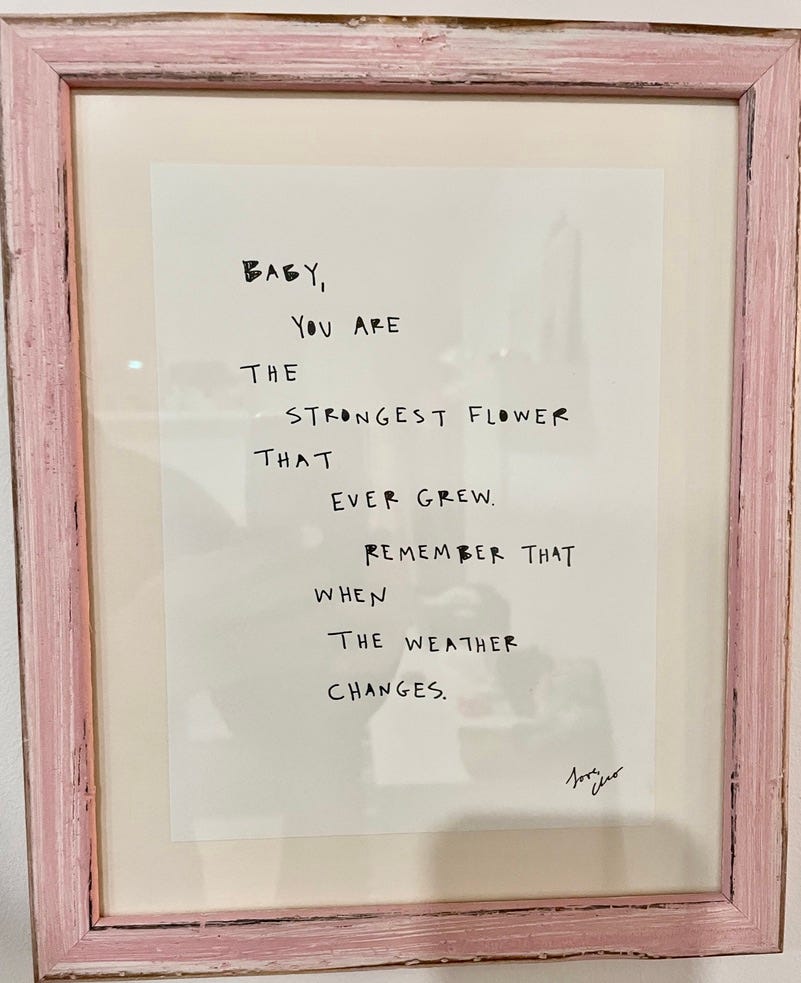 BABY,
YOU ARE
THE
STRONGEST FLOWER
THAT
EVER GREW.
REMEMBER THAT
WHEN
THE WEATHER
CHANGES.
love,
cleo